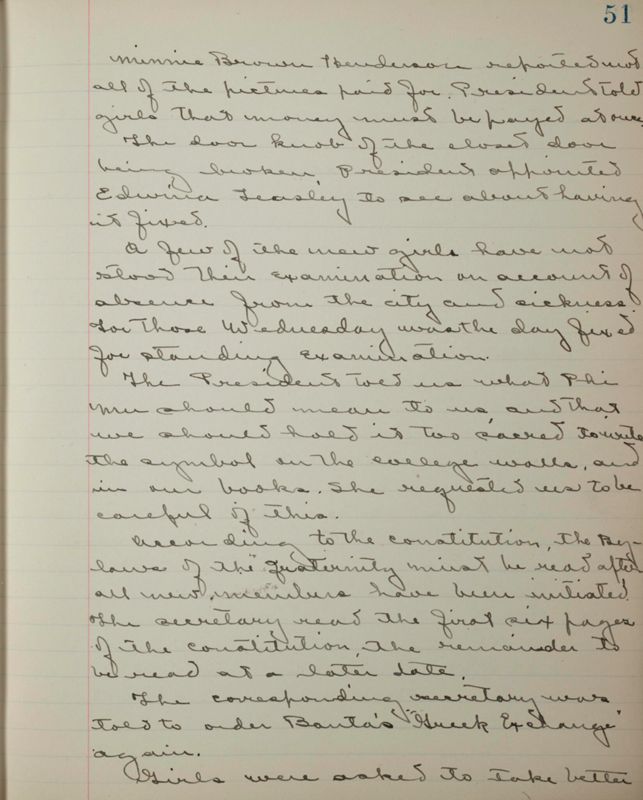 51
Minnie Brown Henderson reported not
all of the pictures paid for. President told
girls that money must be payed at once.
The door knob of the closet door
being broken, President appointed
Edwina Teasley to see about having
it fixed.
A few of the new girls have not
stood their examination on account of
absence from the city and sickness.
For those Wednesday was the day fixed
for standing examination.
The President told us what Phi
Mu should mean to us and that
we should hold it too sacred to write
the symbol on the college walls, and
in our books. She requested us to be
careful of this.
According to the constitution, the By-
laws of the fraternity must be read after
all new members have been initiated.
The secretary read the first six pages
of the constitution, the remainder to
be read at a later date.
The corresponding secretary was
told to order Banta's "Greek Exchange"
again.
Girls were asked to take better